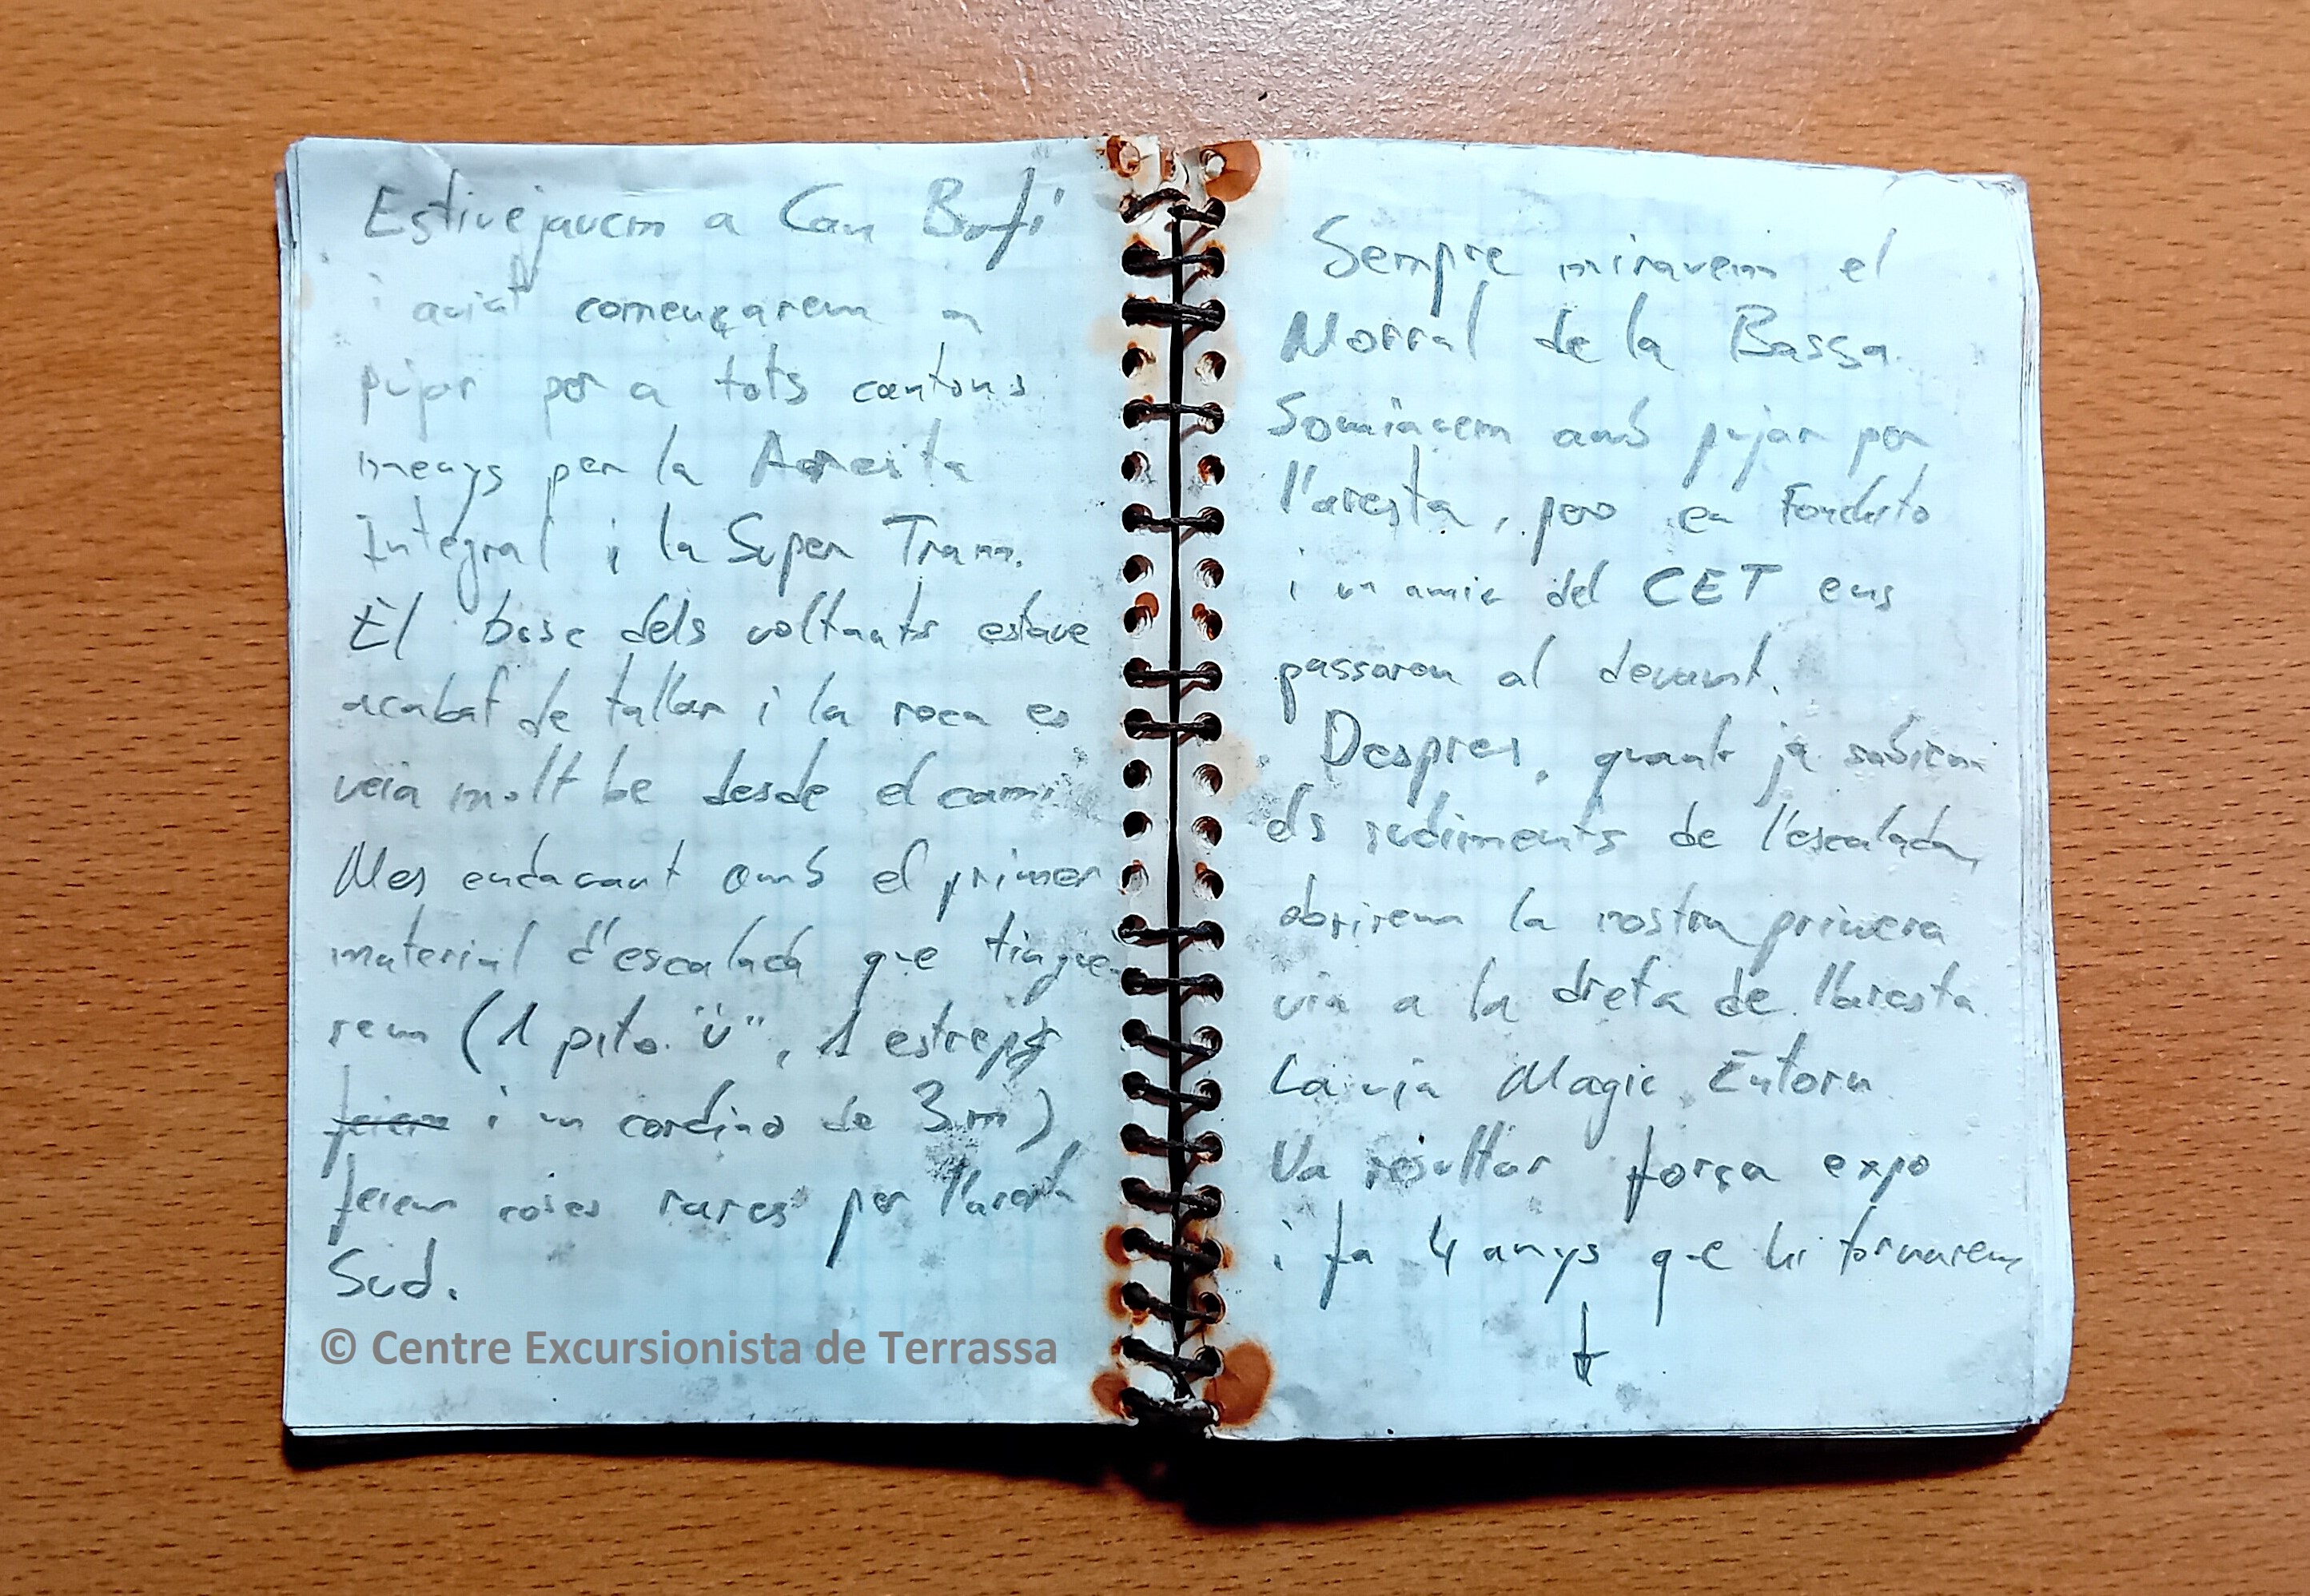 Estivejavem a Can Bofí
i aviat començarem a
pujar per a tots cantons
menys per la Aresta
Integral i la Super Tram.
El bosc dels voltants estave
acabat de tallar i la roca es
veia molt be desde el cami
Mes endavant amb el primer
material d'escalada que tingue
rem (1 pito. "U", 1 estrep
i un cordino de 3m)
feiem coses rares per l'laresta
Sud.
© Centre Excursionista de Terrassa
Sempre miravem el
Morral de la Bassa.
Somiavem amb pujar per
l'aresta, pero en
i un amic del CET ens
passaren al devant.
Despres, quant ja sabiem
els rudiments de l'escalada,
obrirem la nostra primera
via a la dreta de l'laresta.
La via Magic Entorn
Va resultar força expo
i fa 4 anys que hi tornarem